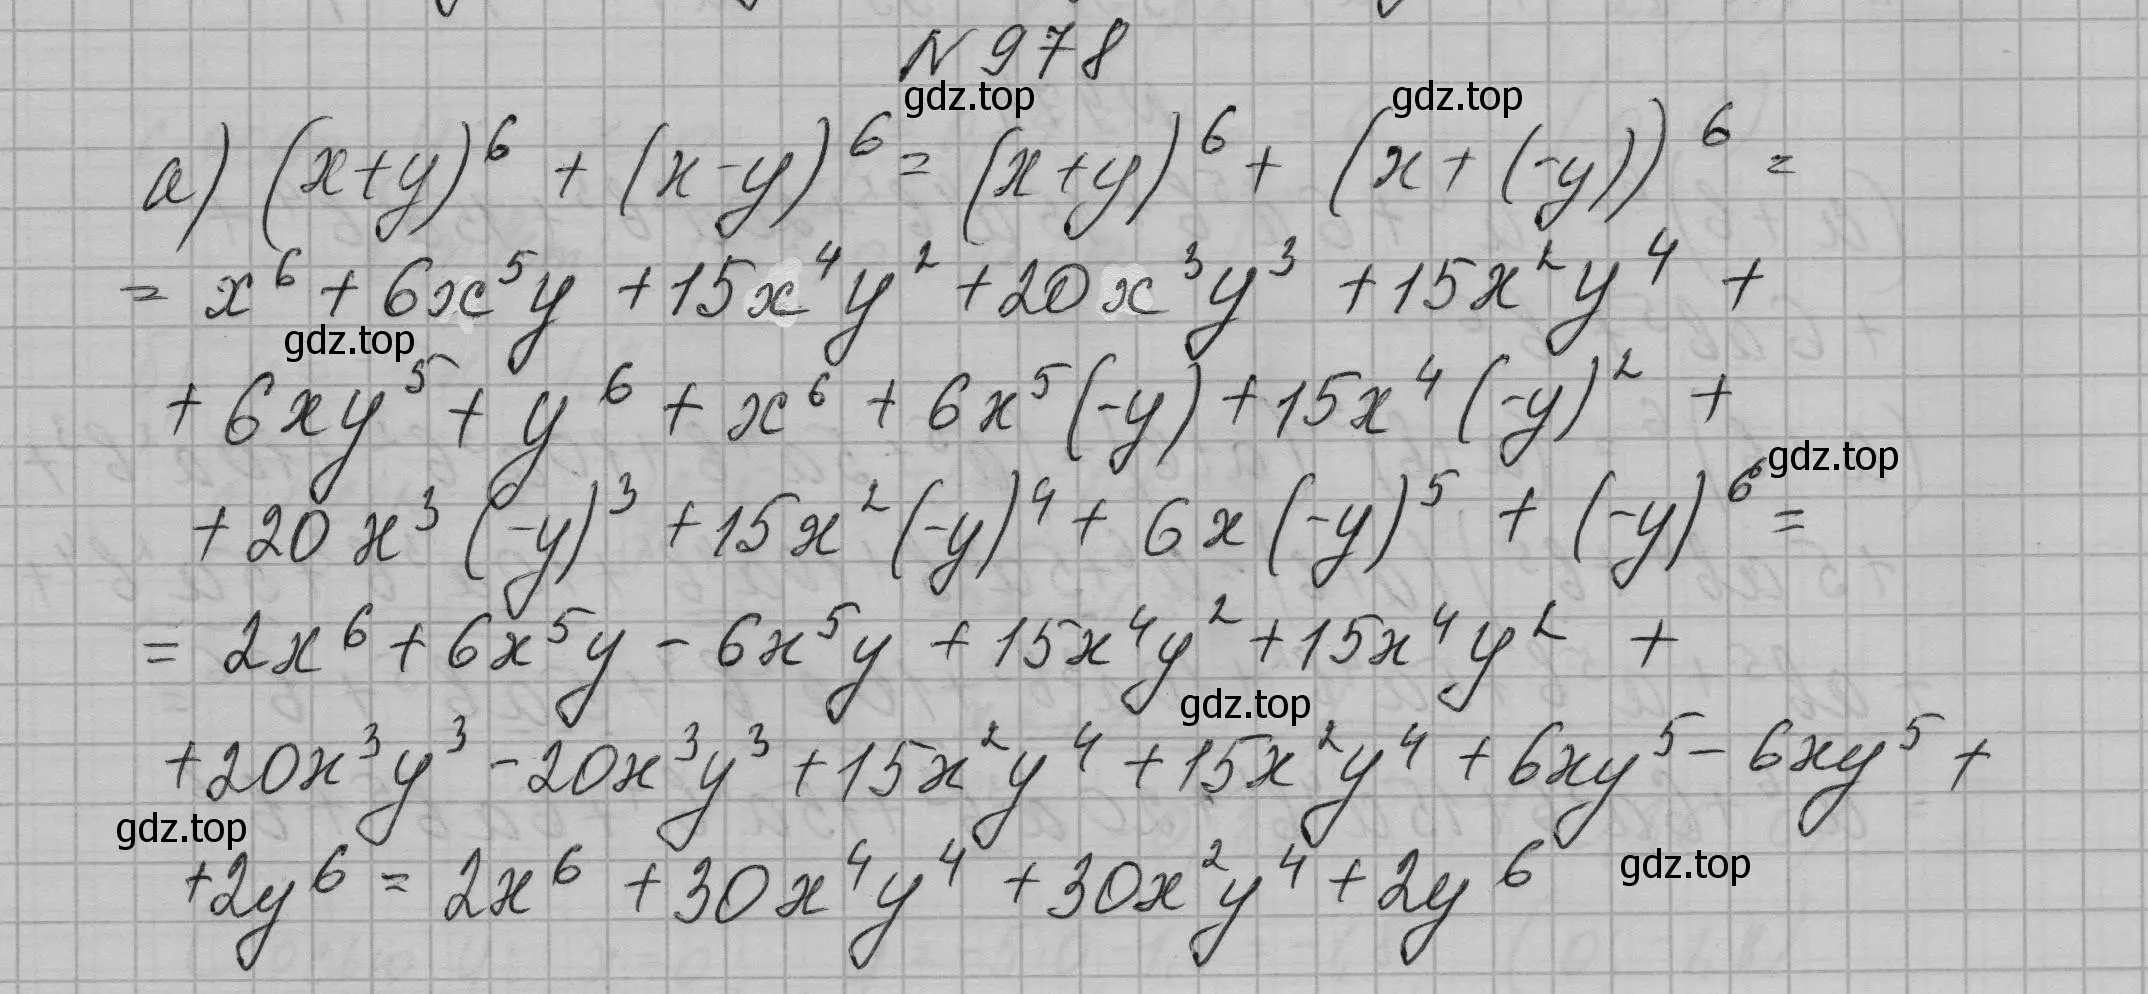 N 978
gdz.top gdz.top
а) (x+y)⁶ + (x-y)⁶ = (x+y)⁶ + (x+(-y))⁶ =
= x⁶ + 6x⁵y + 15x⁴y² + 20x³y³ + 15x²y⁴ +
gdz.top
+ 6xy⁵ + y⁶ + x⁶ + 6x⁵(-y) + 15x⁴(-y)² +
gdz.top
+ 20x³(-y)³ + 15x²(-y)⁴ + 6x(-y)⁵ + (-y)⁶ =
= 2x⁶ + 6x⁵y - 6x⁵y + 15x⁴y² + 15x⁴y² +
gdz.top
+ 20x³y³ - 20x³y³ + 15x²y⁴ + 15x²y⁴ + 6xy⁵ - 6xy⁵ +
gdz.top
+ 2y⁶ = 2x⁶ + 30x⁴y⁴ + 30x²y⁴ + 2y⁶
gdz.top